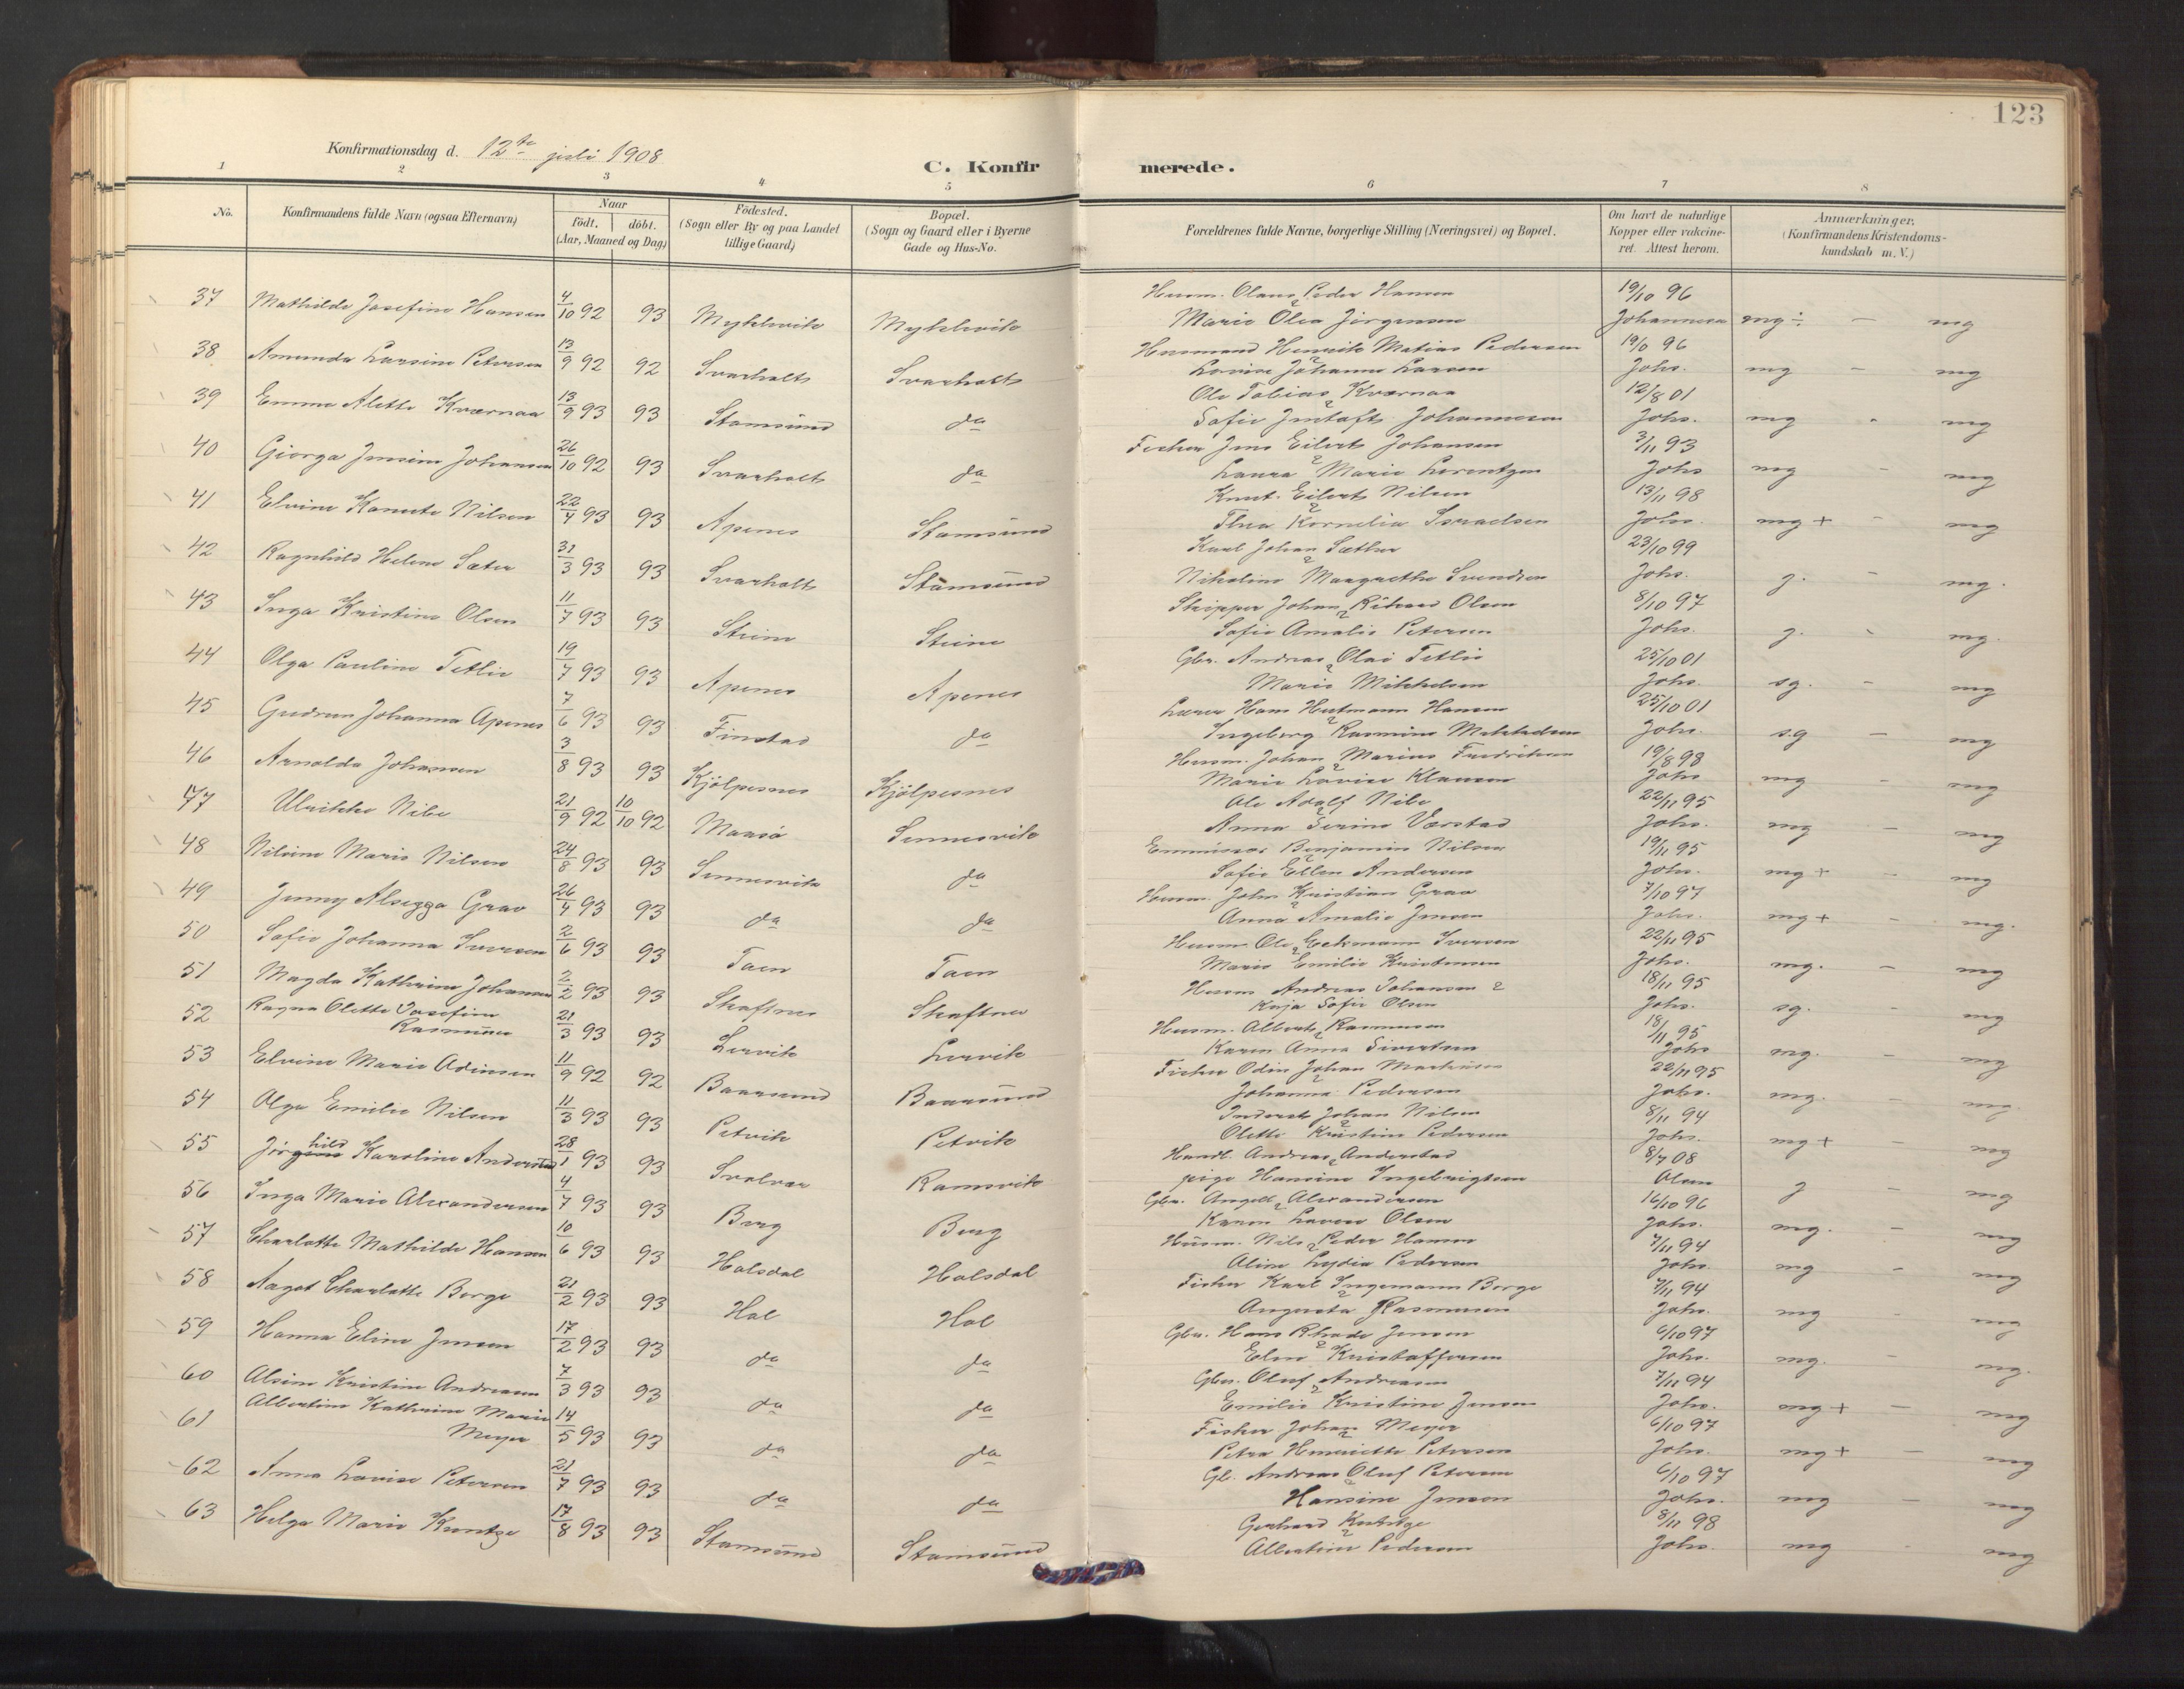 123
Konfirmationsdag d. 12te juli 1908
C. Konfirmerede.
1 2 3 4 5 6 7 8
No.
Konfirmandens fulde Navn (ogsaa Efternavn)
Naar
födt. döbt.
(Aar, Maaned og Dag)
Födested.
(Sogn eller By og paa Landet
tillige Gaard)
Bopæl.
(Sogn og Gaard eller i Byerne
Gade og Hus-No.
Forældrenes fulde Navne, borgerlige Stilling (Næringsvei) og Bopæl.
Om havt de naturlige
Kopper eller vakcine-
ret. Attest herom.
Anmærkninger.
(Konfirmandens Kristendoms-
kundskab m. V.)
37 Mathilde Josefine Hansen 4/10 92 93 Husm. Olaus Peder Hansen 19/10 96
Marie Olea Jörgensen Johannesen mg ÷ — mg
38 Amanda Larsine Petersen 13/9 92 92 Svarholt Svarholt Husmand Henrik Matias Pedersen 19/10 96
Lovise Johanna Larsen Johs. mg — mg
39 Emma Alette Kværnaa 13/9 93 93 Stamsund do Ole Tobias Kværnaa 12/8 01
Sofie Johannesen Johs. mg - mg
40 Giorga Jensine Johansen 26/10 92 93 Svarholt do Fisker Jens Eilert Johansen 3/11 93
Laura Marie Lorentzen Johs mg - mg
41 Elvine Kanute Nilsen 22/4 93 93 Apenes Stamsund Knut Eilert Nilsen 13/11 98
Thea Kornelia Israelsen Johs. mg + - mg
42 Ragnhild Helene Sæter 31/3 93 93 Svarholt Stamsund Karl Johan Sæther 23/10 99
Nikoline Margrethe Svendsen Johs. g. - mg.
43 Inga Kristine Olsen 11/7 93 93 Steine Steine Skipper Johan Rikard Olsen 8/10 97
Sofie Amalie Petersen Johs. g. - mg.
44 Olga Pauline Tetlie 19/7 93 93 Apenes Apenes Gbr. Andreas Olai Tetlie 25/10 01
Marie Mikkelsen Johs. sg. - mg
45 Gudrun Johanna Apenes 7/6 93 93 Finstad do Lærer Hans Hansen 25/10 01
Ingeborg Rasmine Mikkelsen Johs. s.g — mg
46 Arnolda Johansen 3/8 93 93 Kjölpesnes Kjölpesnes Husm. Johan Marius Fredriksen 19/8 98
Marie Lovise Klausen Johs mg - mg
47 Ulrikke Nibe 21/9 92 10/10 92 Maasö Sennesvik Ole Adolf Nibe 22/11 95
Anna Serine Vorstad Johs. mg — mg
48 Nilsine Marie Nilsen 24/8 93 93 Sennesvik do Benjamin Nilsen 19/11 95
Sofie Ellen Andersen Johs. mg + - mg
49 Jenny Grav 26/4 93 93 do do Husm. Johs Kristian Grav 7/10 97
Anna Amalie Jensen Johs. mg + - mg.
50 Sofie Johanna Iversen 2/6 93 93 Taen Taen Husm. Ole Iversen 22/11 95
Marie Emilie Kristensen Johs. mg. — mg
51 Magda Kathrine Johansen 2/2 93 93 Skaftnes Skaftnes Husm Andreas Johansen 18/11 95
Kaja Sofie Olsen Johs. sg. - mg
52 Ragna Olette Josefine
Rasmussen 21/3 93 93 Lervik Lervik Husm. Albert Rasmussen 18/11 95
Karen Anna Sivertsen Johs mg. - mg
53 Elvine Marie Odinsen 11/9 92 92 Baarsund Baarsund Fisker Odin Johan 22/11 95
Johanna Pedersen Johs. mg. - mg.
54 Olga Emilie Nilsen 11/3 93 93 Petvik Petvik Johan Nilsen 8/11 94
Olette Kristine Pedersen Johs. mg + - mg
55 Jörghild Karoline Anderstad 28/1 93 93 Svolvær Ramsvik Handl. Andreas Anderstad 8/7 08
pige Hansine Ingebrigtsen Olsen g - mg
56 Inga Marie Alexandersen 4/7 93 93 Berg Berg Gbr. Angell Alexandersen 16/10 96
Karen Lovise Olsen Johs. mg. - mg
57 Charlotte Mathilde Hansen 10/6 93 93 Holsdal Holsdal Husm. Nils Peder Hansen 7/11 94
Aline Lydia Pedersen Johs. mg - mg
58 Aagot Charlotte Berge 21/2 93 93 Hol Hol Fisker Karl Ingemann Berge 7/11 94
Augusta Rasmussen Johs. mg - mg
59 Hanna Eline Jensen 17/2 93 93 do do Gbr. Hans Rhode Jensen 6/10 97
Elen Kristoffersen Johs. mg. - mg.
60 Alsine Kristine Andreasen 7/3 93 93 do do Gbr. Oluf Andreasen 7/11 94
Emilie Kristine Jensen Johs. mg + — mg
61 Albertine Kathrine Marie
Meyer 14/5 93 93 do do Fisker Johan Meyer 6/10 97
Petra Henriette Petersen Johs. mg + — mg
62 Anna Lovise Petersen 21/7 93 93 do do Gb. Andreas Oluf Petersen 6/10 97
Hansine Jensen Johs. mg — mg
63 Helga Marie Kuntze 17/8 93 93 Stamsund Stamsund Gerhard 8/11 98
Albertine Pedersen Johs. mg - mg